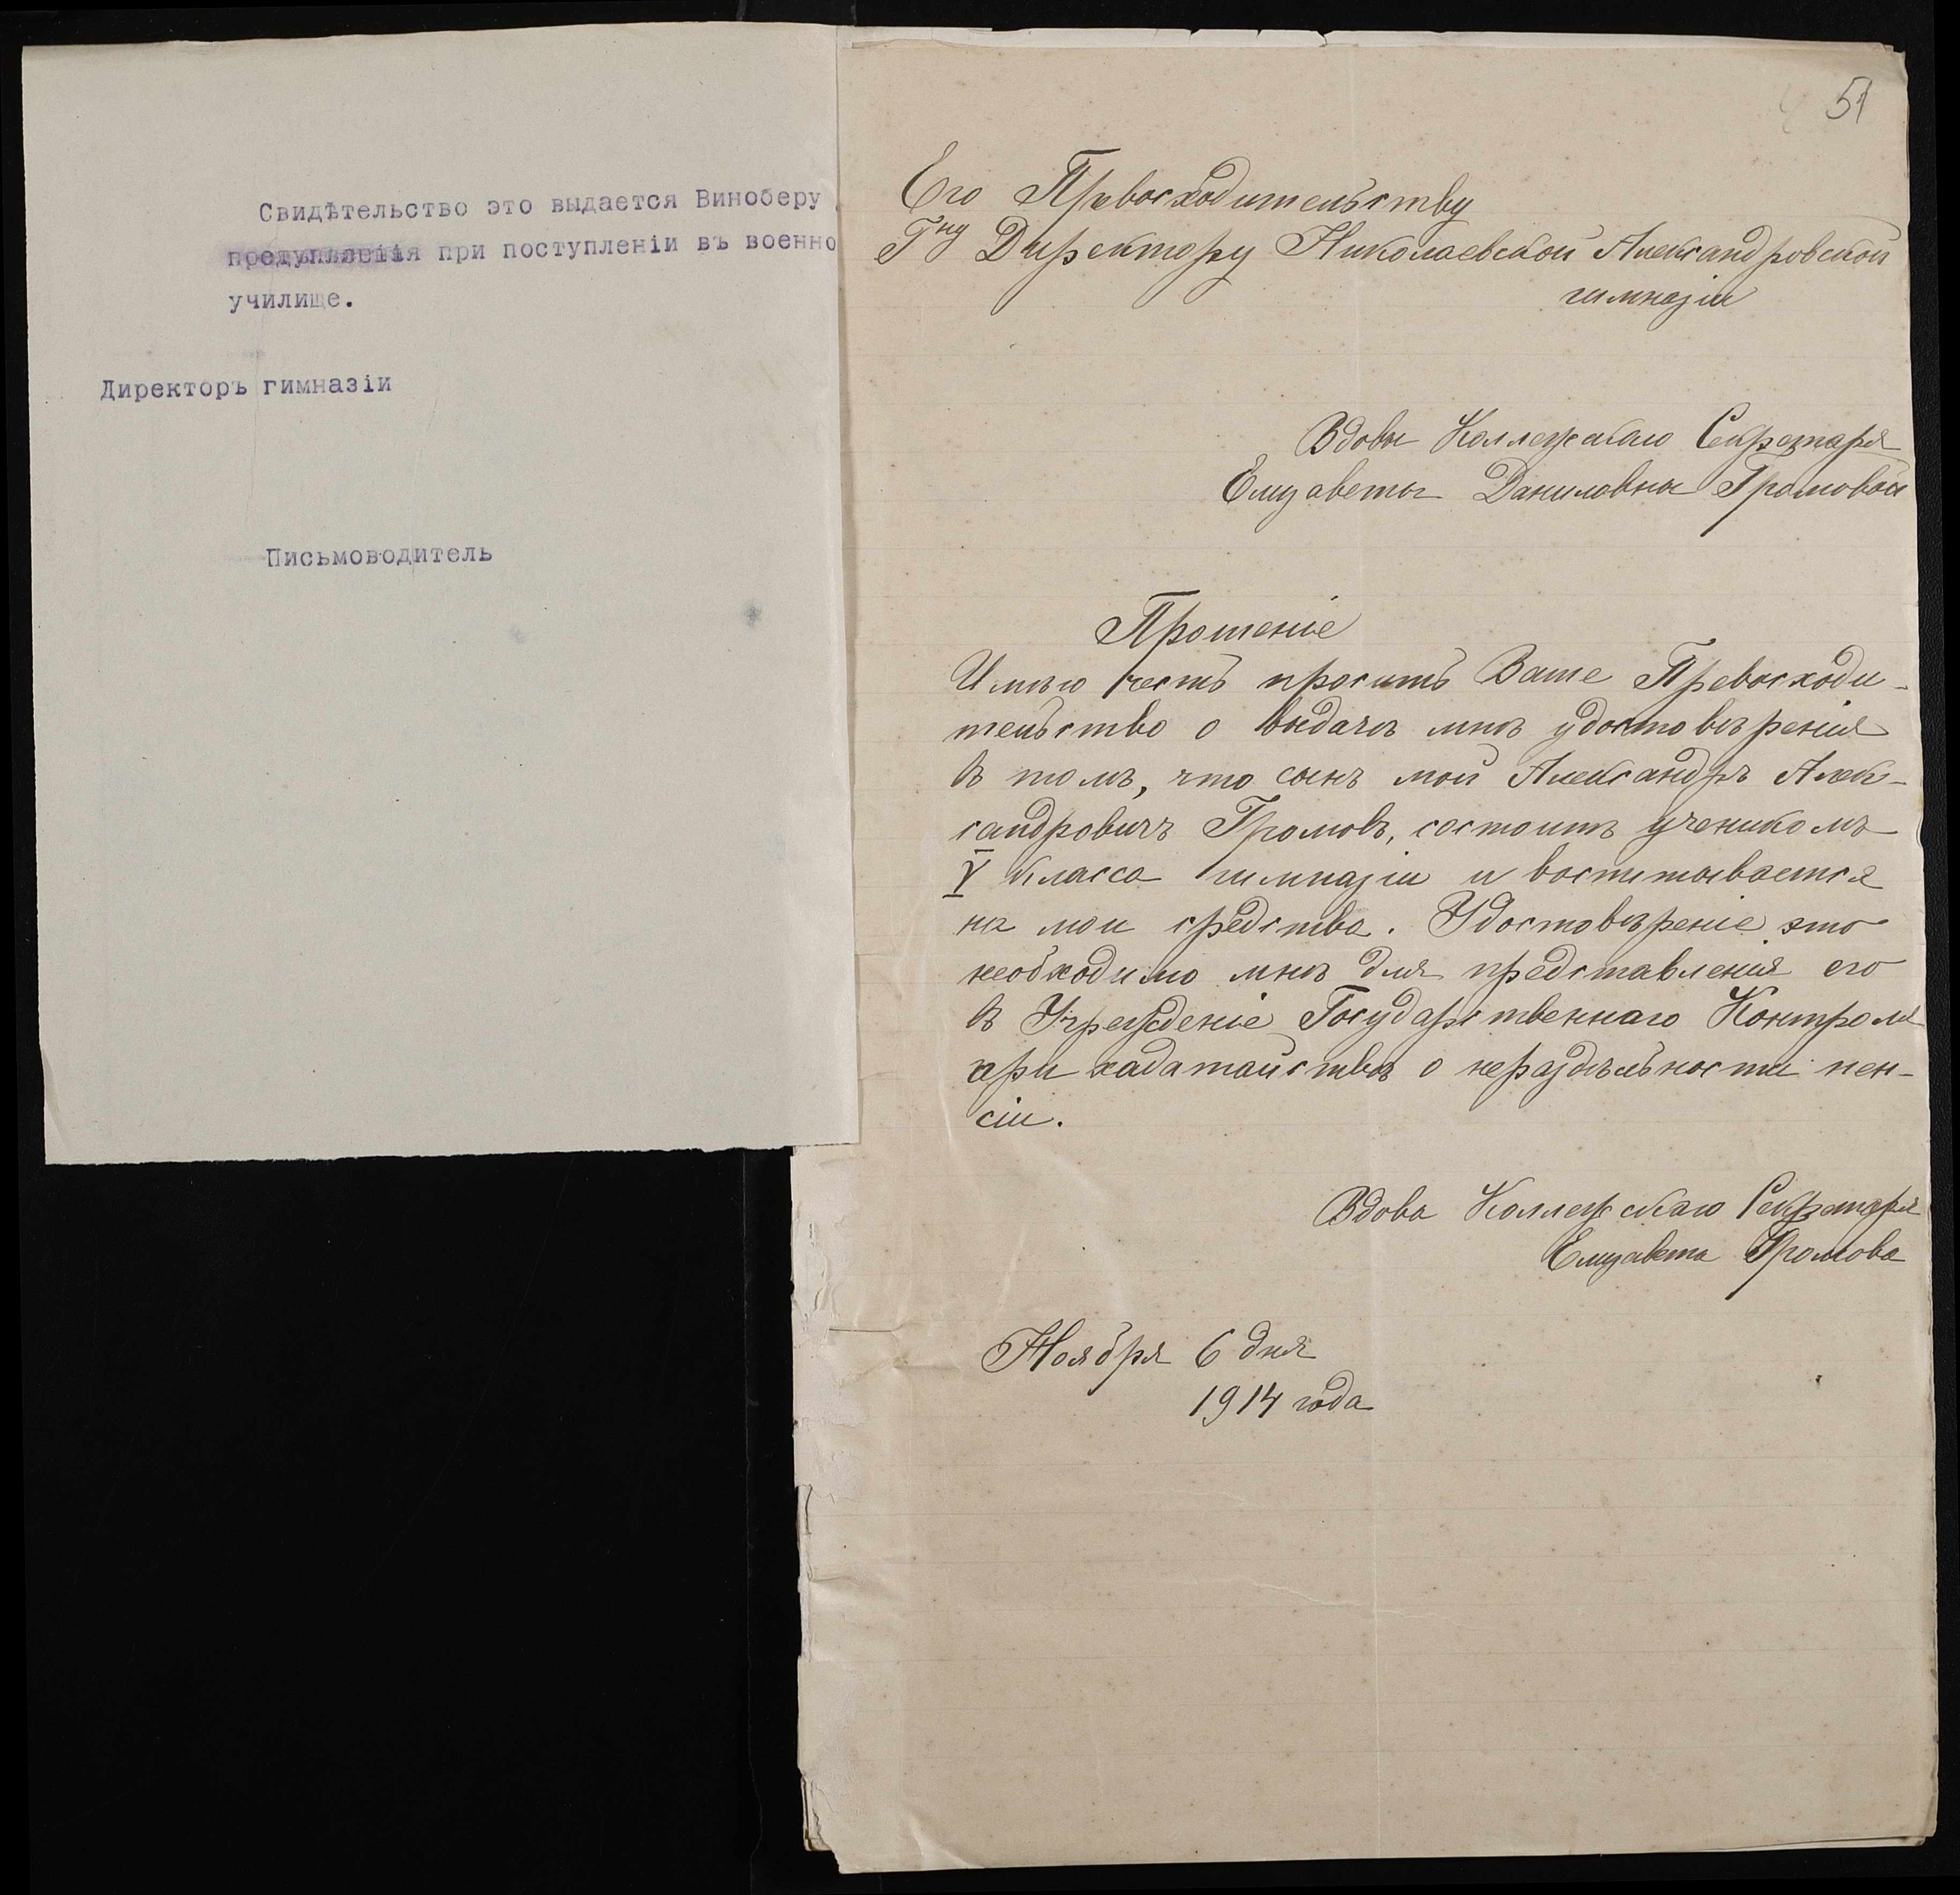 Свидѣтельство это выдается Виноберу
при поступленіи въ военно
училище.
Директоръ гимназіи
Письмоводитель
51
Его Превосходительству
Гну Директору Николаевской Александровской
гимназіи
Вдовы Коллежскаго Секретаря
Елизаветы Даниловны Громовой
Прошеніе
Имѣю честь просить Ваше Превосходи-
тельство о выдачѣ мнѣ удостовѣренія
въ томъ, что сынъ мой Александръ Алек-
сандровичъ Громовъ, состоитъ ученикомъ
V класса гимназіи и воспитывается
на мои средства. Удостовѣреніе это
необходимо мнѣ для представленія его
въ Учрежденіе Государственнаго Контроля
при хадатайствѣ о нераздѣльности пен-
сіи.
Вдова Коллежскаго Секретаря
Елизавета Громова
Ноября 6 дня
1914 года